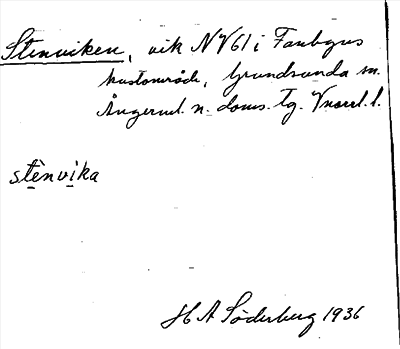 Stenviken, vik NV61 i Fanbyns
kustområde, Grundsunda sn.
Ångerml. n. doms. tg. Vnorrl. l.
stènvika
H A Söderberg 1936